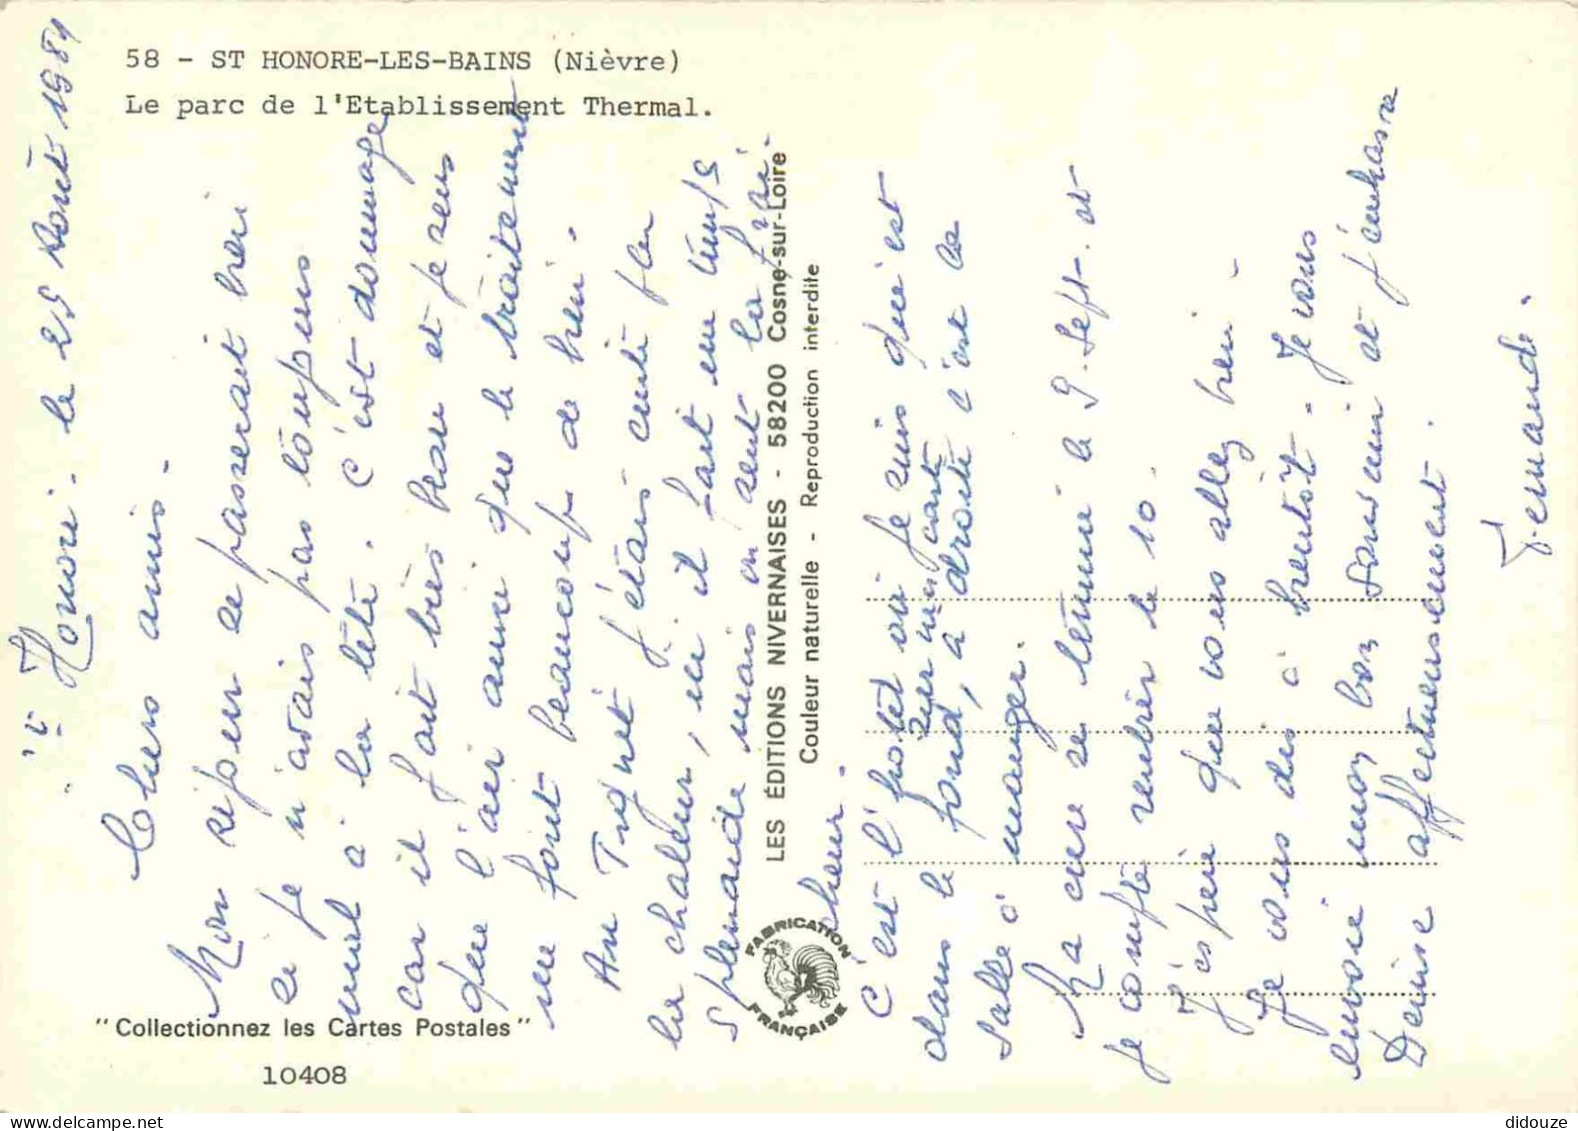 58 - ST HONORE-LES-BAINS (Nièvre)
Le parc de l'Etablissement Thermal.
St Honoré. le 25 Août 1984
Chers amis -
Mon séjour se passerait bien
si je n'avais pas toujours
mal à la tête. C'est dommage
car il fait très beau et je sens
que l'air ainsi que le traitement
me font beaucoup de bien.
Au Trynet j'étais cuite par
la chaleur, ici il fait un temps
splendide mais on sent la fraî-
cheur.
C'est l'hotel où je suis qui est
sur ma carte
dans le fond, à droite c'est la
salle à manger.
Ma cure se termine le 9 Sept. et
je compte rentrer le 10.
J'espère que vous allez bien -
Je vous dis à bientôt - Je vous
envoie mon bon souvenir et j'embrasse
Denise affectueusement.
Fernande.
LES ÉDITIONS NIVERNAISES - 58200 Cosne-sur-Loire
Couleur naturelle - Reproduction interdite
FABRICATION
FRANÇAISE
"Collectionnez les Cartes Postales"
10408
didouze